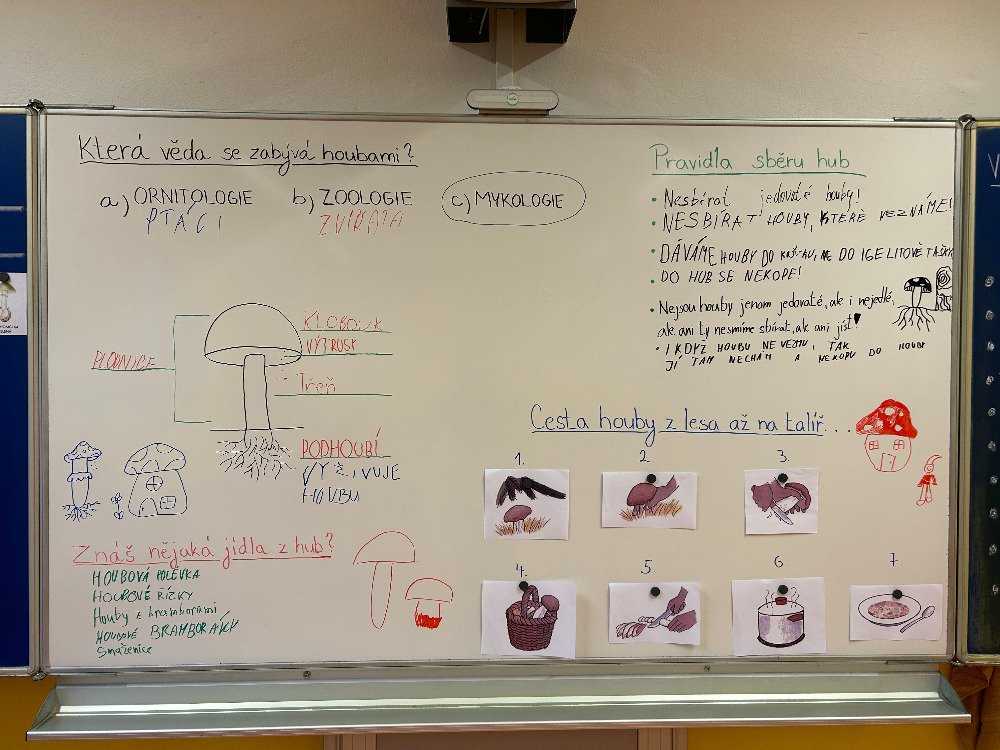 Která věda se zabývá houbami?
a) ORNITOLOGIE b) ZOOLOGIE c) MYKOLOGIE
PTÁCI ZVÍŘATA
KLOBOUK
VÝTRUSY
PLODNICE
Třeň
PODHOUBÍ
VYŽIVUJE
HOUBU
Znáš nějaká jídla z hub?
HOUBOVÁ POLÉVKA
HOUBOVÉ ŘÍZKY
Houby z bramborami
HOUBOVÉ BRAMBORÁKY
Smaženice
Pravidla sběru hub
• Nesbírat jedovaté houby!
• NESBÍRAT HOUBY, KTERÉ NEZNÁME!
• DÁVÁME HOUBY DO KOŠÍKU, NE DO IGELITOVÉ TAŠKY
• DO HUB SE NEKOPE!
• Nejsou houby jenom jedovaté, ale i nejedlé,
ale ani ty nesmíme sbírat, ale ani jíst!
• I KDYŽ HOUBU NEVEZMU, TAK
JÍ TAM NECHÁM A NEKOPU DO HOUBY
Cesta houby z lesa až na talíř...
1. 2. 3.
4. 5. 6. 7.